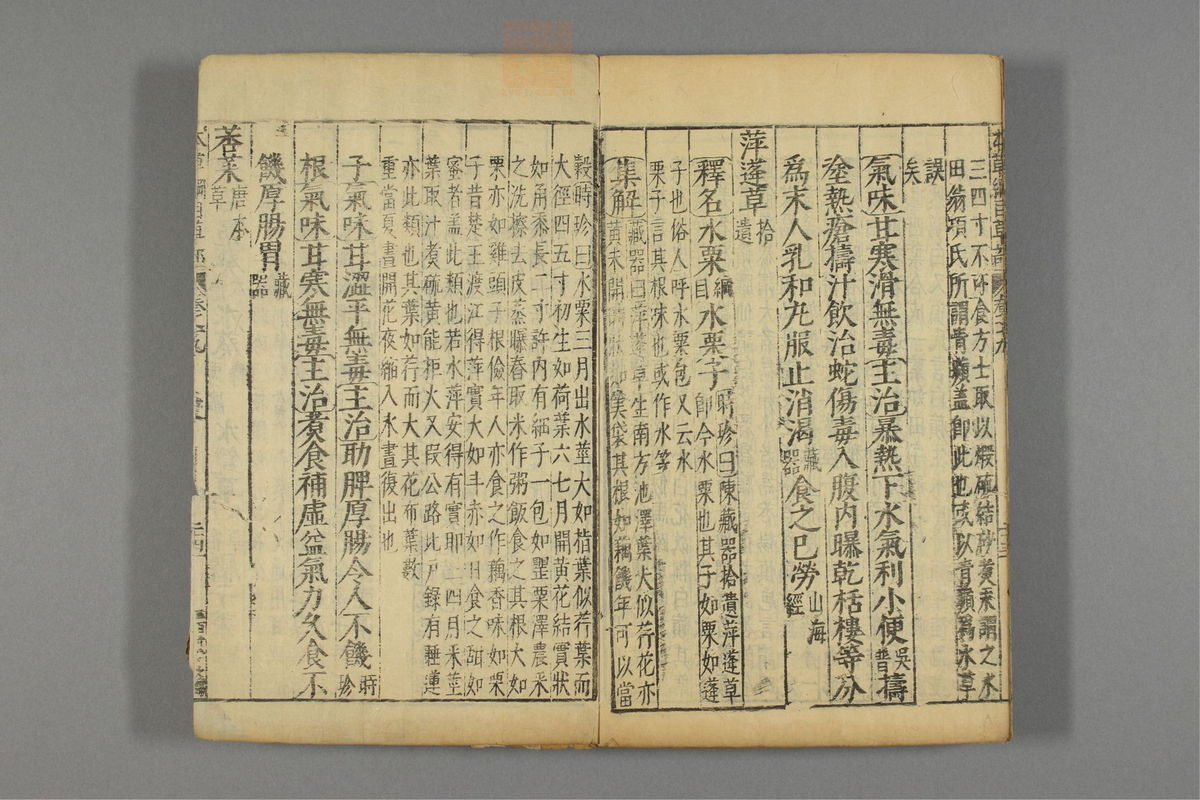 三四寸不亦食方士取以煆硫結砂黃朱謂之水
田翁項氏所謂青蘋盖即此也或以青蘋爲水草
誤
矣
氣味甘寒滑無毒主治暴熱下水氣利小便吳普擣
塗熱瘡擣汁飲治蛇傷毒入腹内曝乾栝樓等分
爲末人乳和丸服止消渴藏器食之已勞山海經
萍蓬草拾遺
釋名水栗綱目水栗子時珍曰陳藏器拾遺萍蓬草
即今水栗也其子如栗如蓬
子也俗人呼水栗包又云水
栗子言其根味也或作水笭
集解藏器曰萍蓬草生南方池澤葉大似荇花亦
黃未開時狀如筭袋其根如藕饑年可以當
穀時珍曰水栗三月出水莖大如指葉似荇葉而
大徑四五寸初生如荷葉六七月開黃花結實狀
如角黍長二寸許内有細子一包如罌粟澤農采
之洗擦去皮蒸曝舂取米作粥飯食之其根大如
栗亦如雞頭子根儉年人亦食之作藕香味如栗
子昔楚王渡江得萍實大如斗赤如日食之甜如
蜜者盖此類也若水萍安得有實耶三四月采莖
葉取汁煮硫黃能拒火又段公路北戶錄有睡蓮
亦此類也其葉如荇而大其花布葉數
重當夏晝開花夜縮入水晝復出也
子氣味甘澀平無毒主治助脾厚腸令人不饑時珍
根氣味甘寒無毒主治煮食補虛益氣力久食不
饑厚腸胃藏器
莕菜唐本草